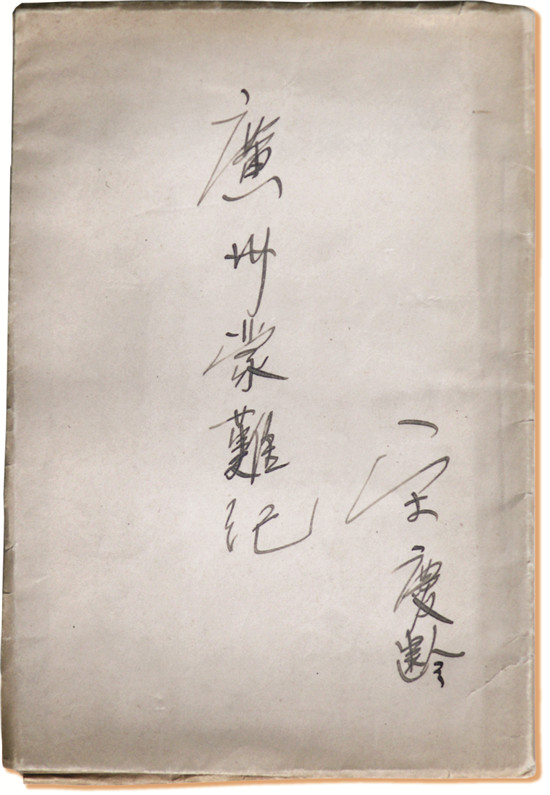 廣州蒙難記
宋慶齡